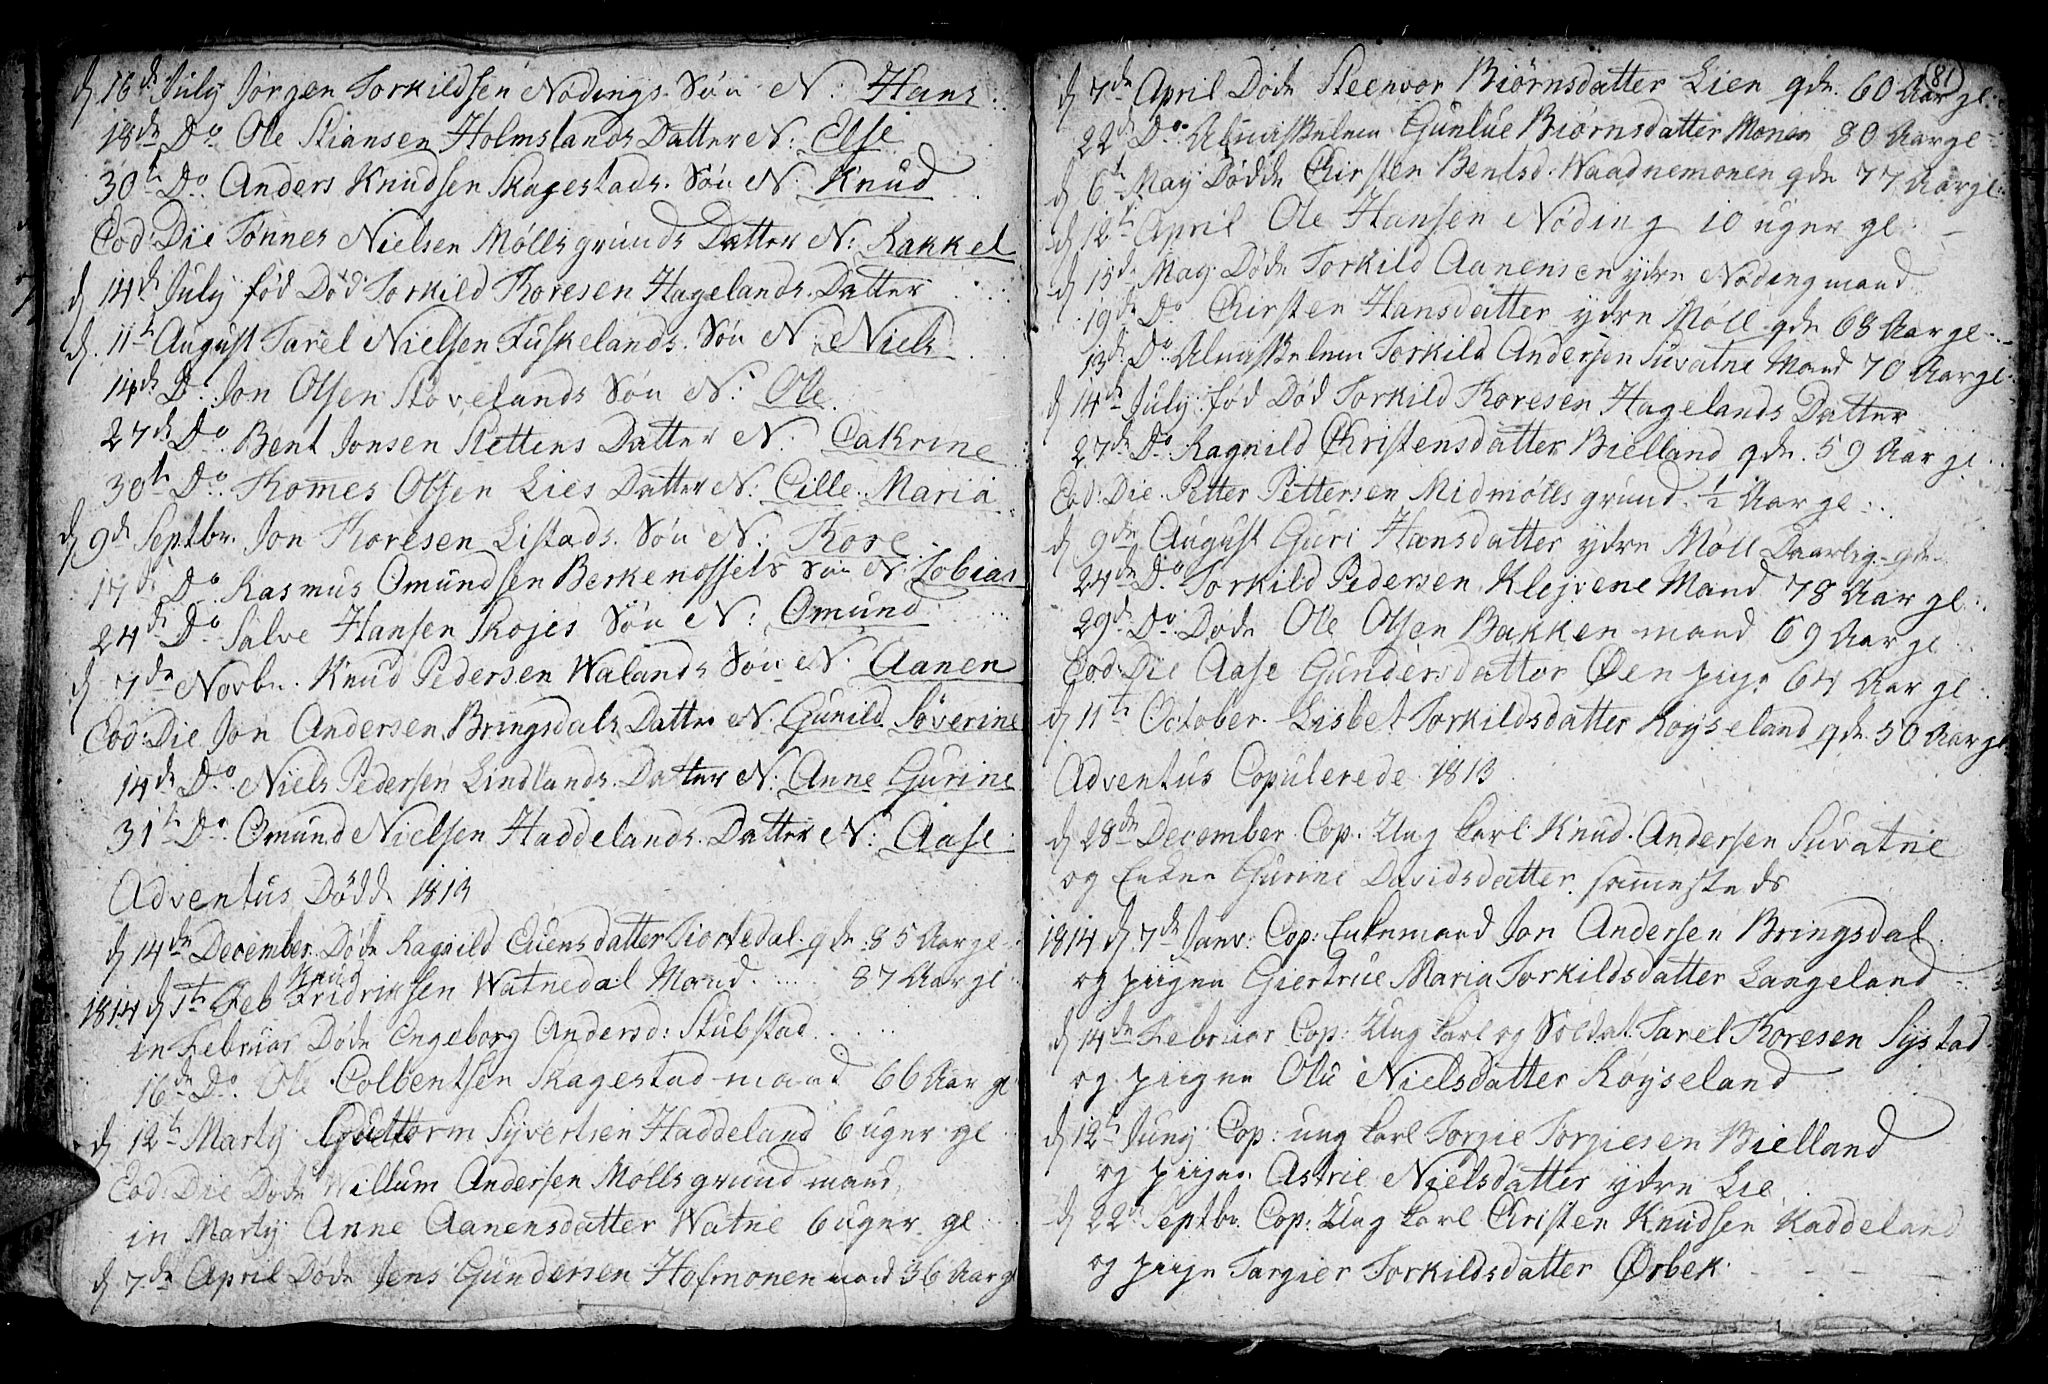 d 16de July Jørgen Torkildsen Nødings Søn N: Hans
18de Do Ole Stiansen Holmslands Datter N: Else
30te Do Anders Knudsen Skagestads Søn N: Knud
Eod: Die Tønnes Nielsen Mølls grunds Datter N: Rakkel
d 14de July fød Død Torkild Thoresen Hagelands Datter
d. 11te August Tarel Nielsen Fuskelands Søn N: Niels
14de Do Jon Olsen Støvelands Søn N: Ole
27de Do Bent Jonsen Slettens Datter N: Cathrine
30te Do Thomes Olsen Lies Datter N: Cille Maria
d 9de Septbr. Jon Thoresen Listads Søn N: Thore
17de Do Rasmus Omundsen Berkenossels Søn N: Tobias
24de Do Salve Hansen Skojes Søn N: Omund
d 7de Novbr. Knud Pedersen Walands Søn N: Aanen
Eod: Die Jon Andersen Bringsdals Datter N: Gunild Søverine
14de Do Niels Pedersen Lindlands Datter N: Anne Gurine
31te Do Omund Nielsen Haddelands Datter N: Aase
Adventus Dødde 1813
d 14de December Døde Ragnild Evensdatter Tiortedal qde 85 Aar gl
1814 d 1te Feb Knud Fridriksen Watnedal Mand 87 Aar gl
in Februar Døde Engeborg Andersd: Stubstad
16de Do Ole Colbentsen Skagestad mand 66 Aar gl
d 12te Marty Guttorm Syvertsen Haddeland 6 uger gl
Eod: Die Døde Willum Andersen Mølls grund mand
in Marty Anne Aanensdatter Watne 6 uger gl
d 7de April Døde Jens Gundersen Hofmonen mand 36 Aar gl
(81)
d 7de April Døde Steenvor Biørnsdatter Lien qde 60 Aar gl
22de Do Gunlue Biørnsdatter Monen 80 Aar gl
d 6te May Dødde Chirsten Bentsd. Waadnemonen qde 77 Aar gl
d 12te April Ole Hansen Nøding 10 uger gl
d 15de May Døde Torkild Aanensen ydre Nøding mand
19de Do Chirsten Hansdatter ydre Møll qde 68 Aar gl
13de Do Torkild Andersen Suvatne Mand 70 Aar gl
d 14de July fød Død Torkild Thoresen Hagelands Datter
27de Do Ragnild Christensdatter Bielland qde 59 Aar gl
Eod: Die Petter Pettersen Midmølls grund 1/2 Aar gl
d 9de August Guri Hansdatter ydre Møll Daarlig qde
24de Do Torkild Pedersen Klejvene Mand 78 Aar gl
29de Do Døde Ole Olsen Bakken mand 69 Aar gl
Eod: Die Aase Gundersdatter Øen pige 64 Aar gl
d 11te October Lisbet Torkildsdatter Røyseland qde 50 Aar gl
Adventus Copulerede 1813
d 28de December Cop. Ung karl Knud Andersen Suvatne
og Enken Gurine Davidsdatter sammesteds
1814 d 7de Janv: Cop: Enkemand Jon Andersen Bringsdal
og piigen Giertrue Maria Torkildsdatter Langeland
d 14de Februar Cop: Ung karl og Soldat Tarel Thoresen Systad
og piigen Olu Nielsdatter Røyseland
d 12te Juny Cop: ung karl Torgie Torgiesen Bielland
og piigen Astrie Nielsdatter ydre Lie
d 22de Septbr. Cop: Ung karl Christen Knudsen Kaddeland
og piign Targier Torkildsdatter Ørbek